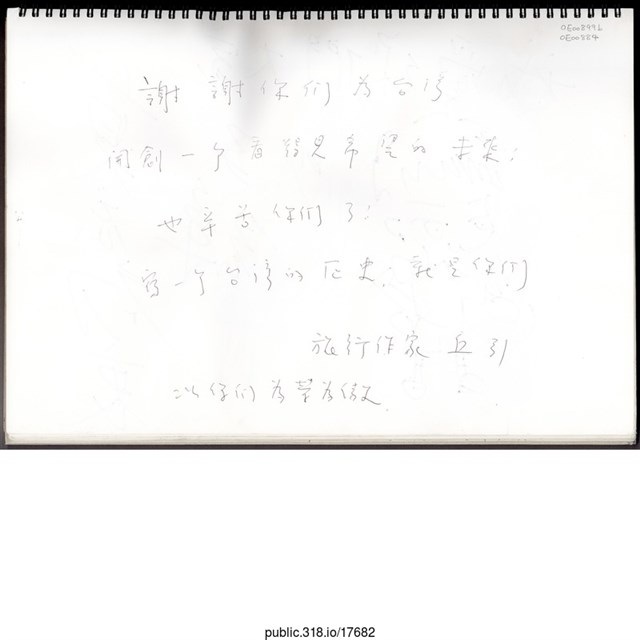 OE008991
OE00884
謝謝你们为台湾
開創一个看得見希望的未來;
也辛苦你们了!
寫一个台湾的历史,就是你们
旅行作家 丘引
以你们为荣为傲
public.318.io/17682